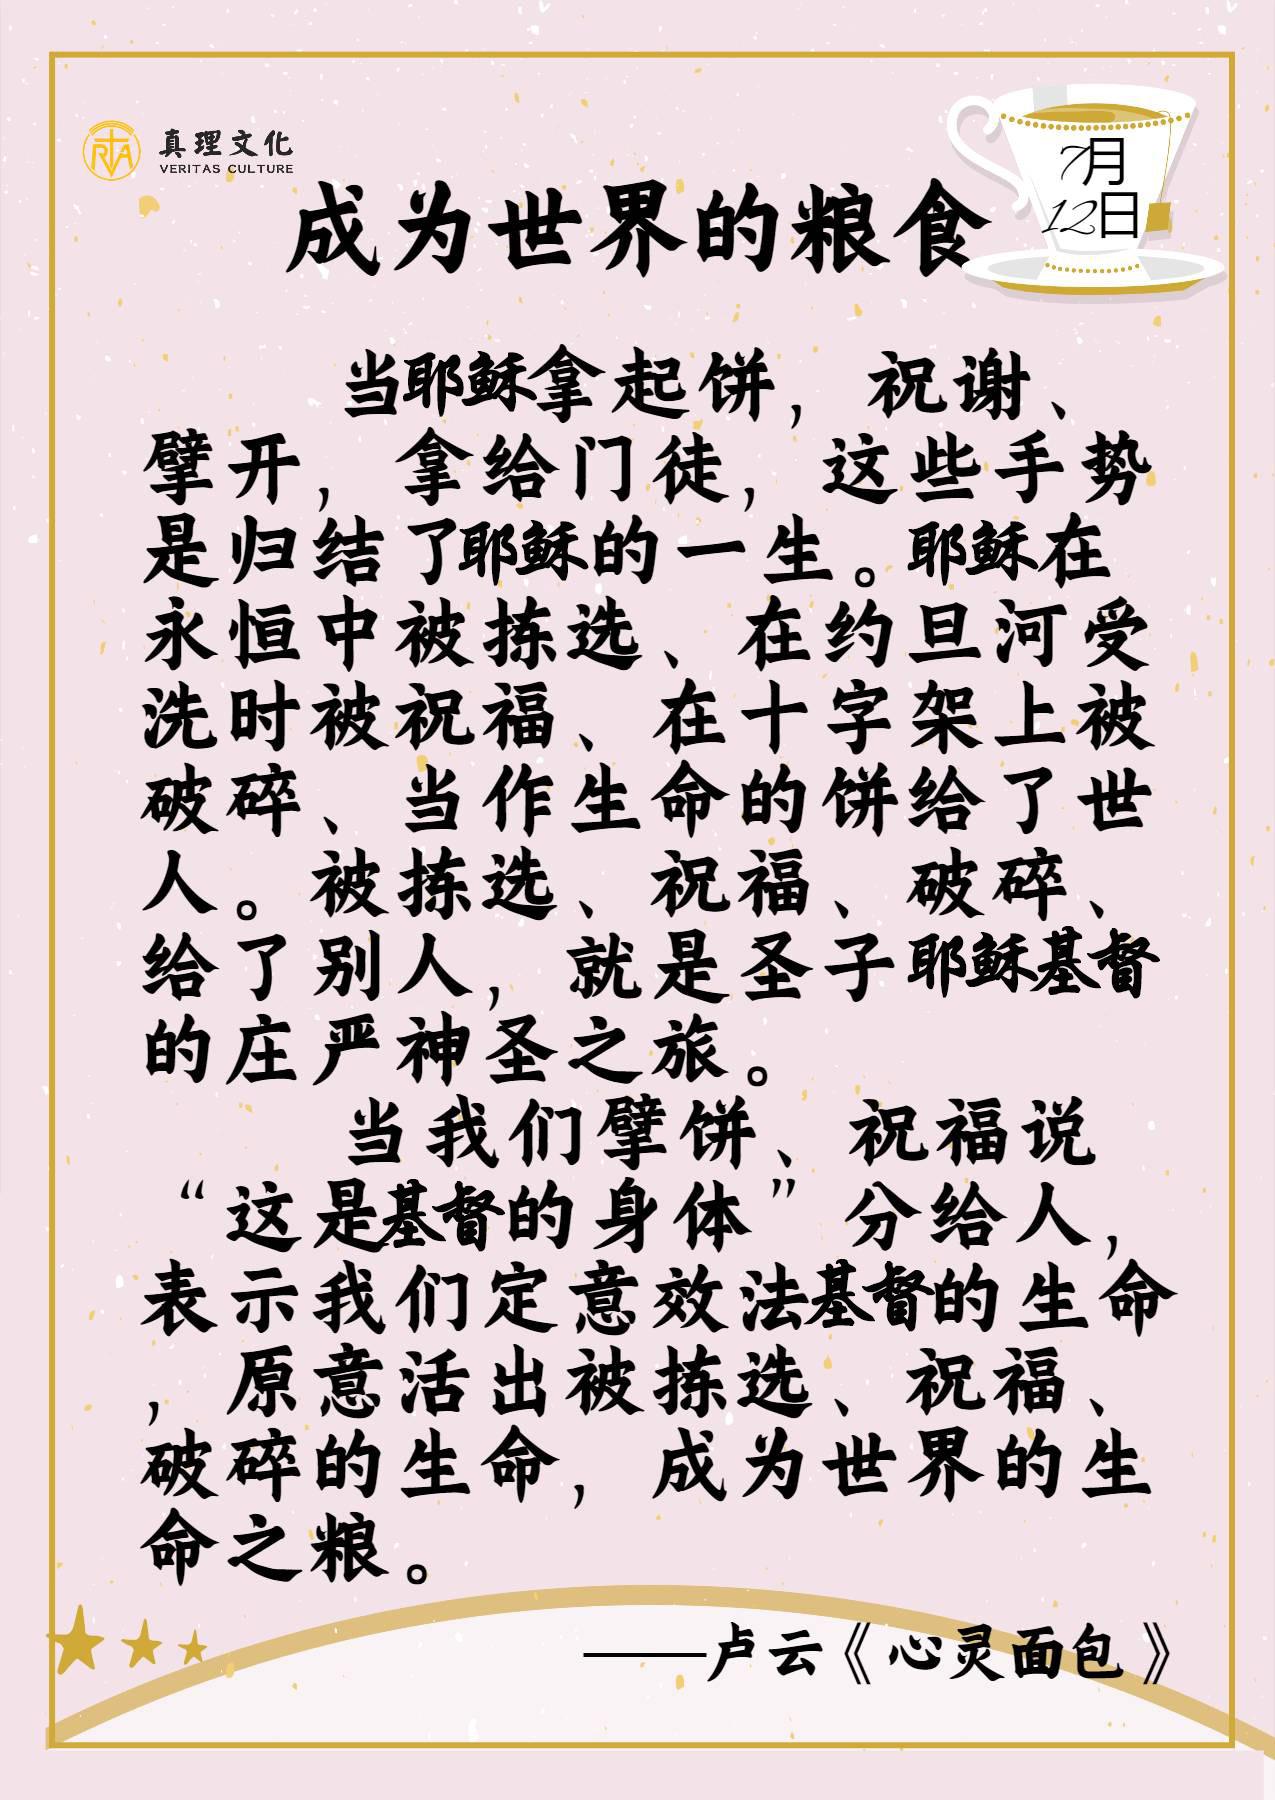 真理文化
VERITAS CULTURE
7月
12日
成为世界的粮食
当耶稣拿起饼，祝谢、
擘开，拿给门徒，这些手势
是归结了耶稣的一生。耶稣在
永恒中被拣选、在约旦河受
洗时被祝福、在十字架上被
破碎、当作生命的饼给了世
人。被拣选、祝福、破碎、
给了别人，就是圣子耶稣基督
的庄严神圣之旅。
当我们擘饼、祝福说
“这是基督的身体”分给人，
表示我们定意效法基督的生命
，原意活出被拣选、祝福、
破碎的生命，成为世界的生
命之粮。
——卢云《心灵面包》